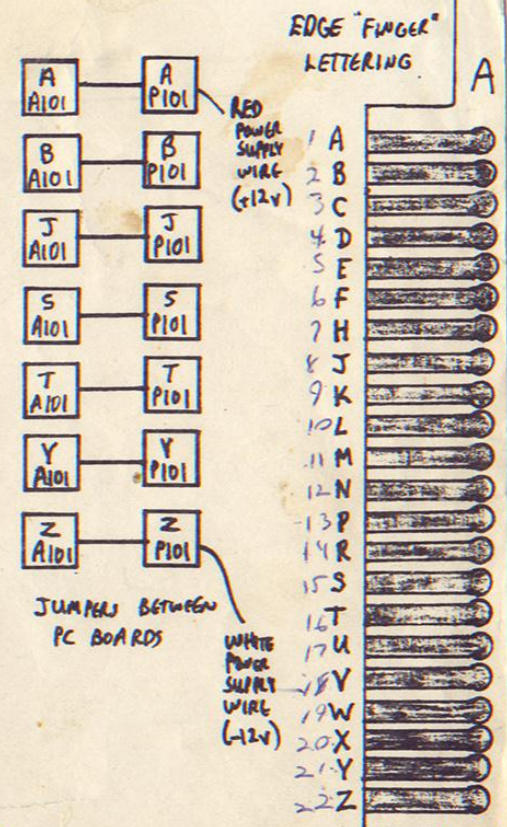 EDGE "FINGER"
LETTERING
A
A
A101
A
P101
RED
POWER
SUPPLY
WIRE
(+12V)
B
A101
B
P101
J
A101
J
P101
S
A101
S
P101
T
A101
T
P101
Y
A101
Y
P101
Z
A101
Z
P101
JUMPERS BETWEEN
PC BOARDS
WHITE
POWER
SUPPLY
WIRE
(-12V)
1 A
2 B
3 C
4 D
5 E
6 F
7 H
8 J
9 K
10 L
11 M
12 N
13 P
14 R
15 S
16 T
17 U
18 V
19 W
20 X
21 Y
22 Z